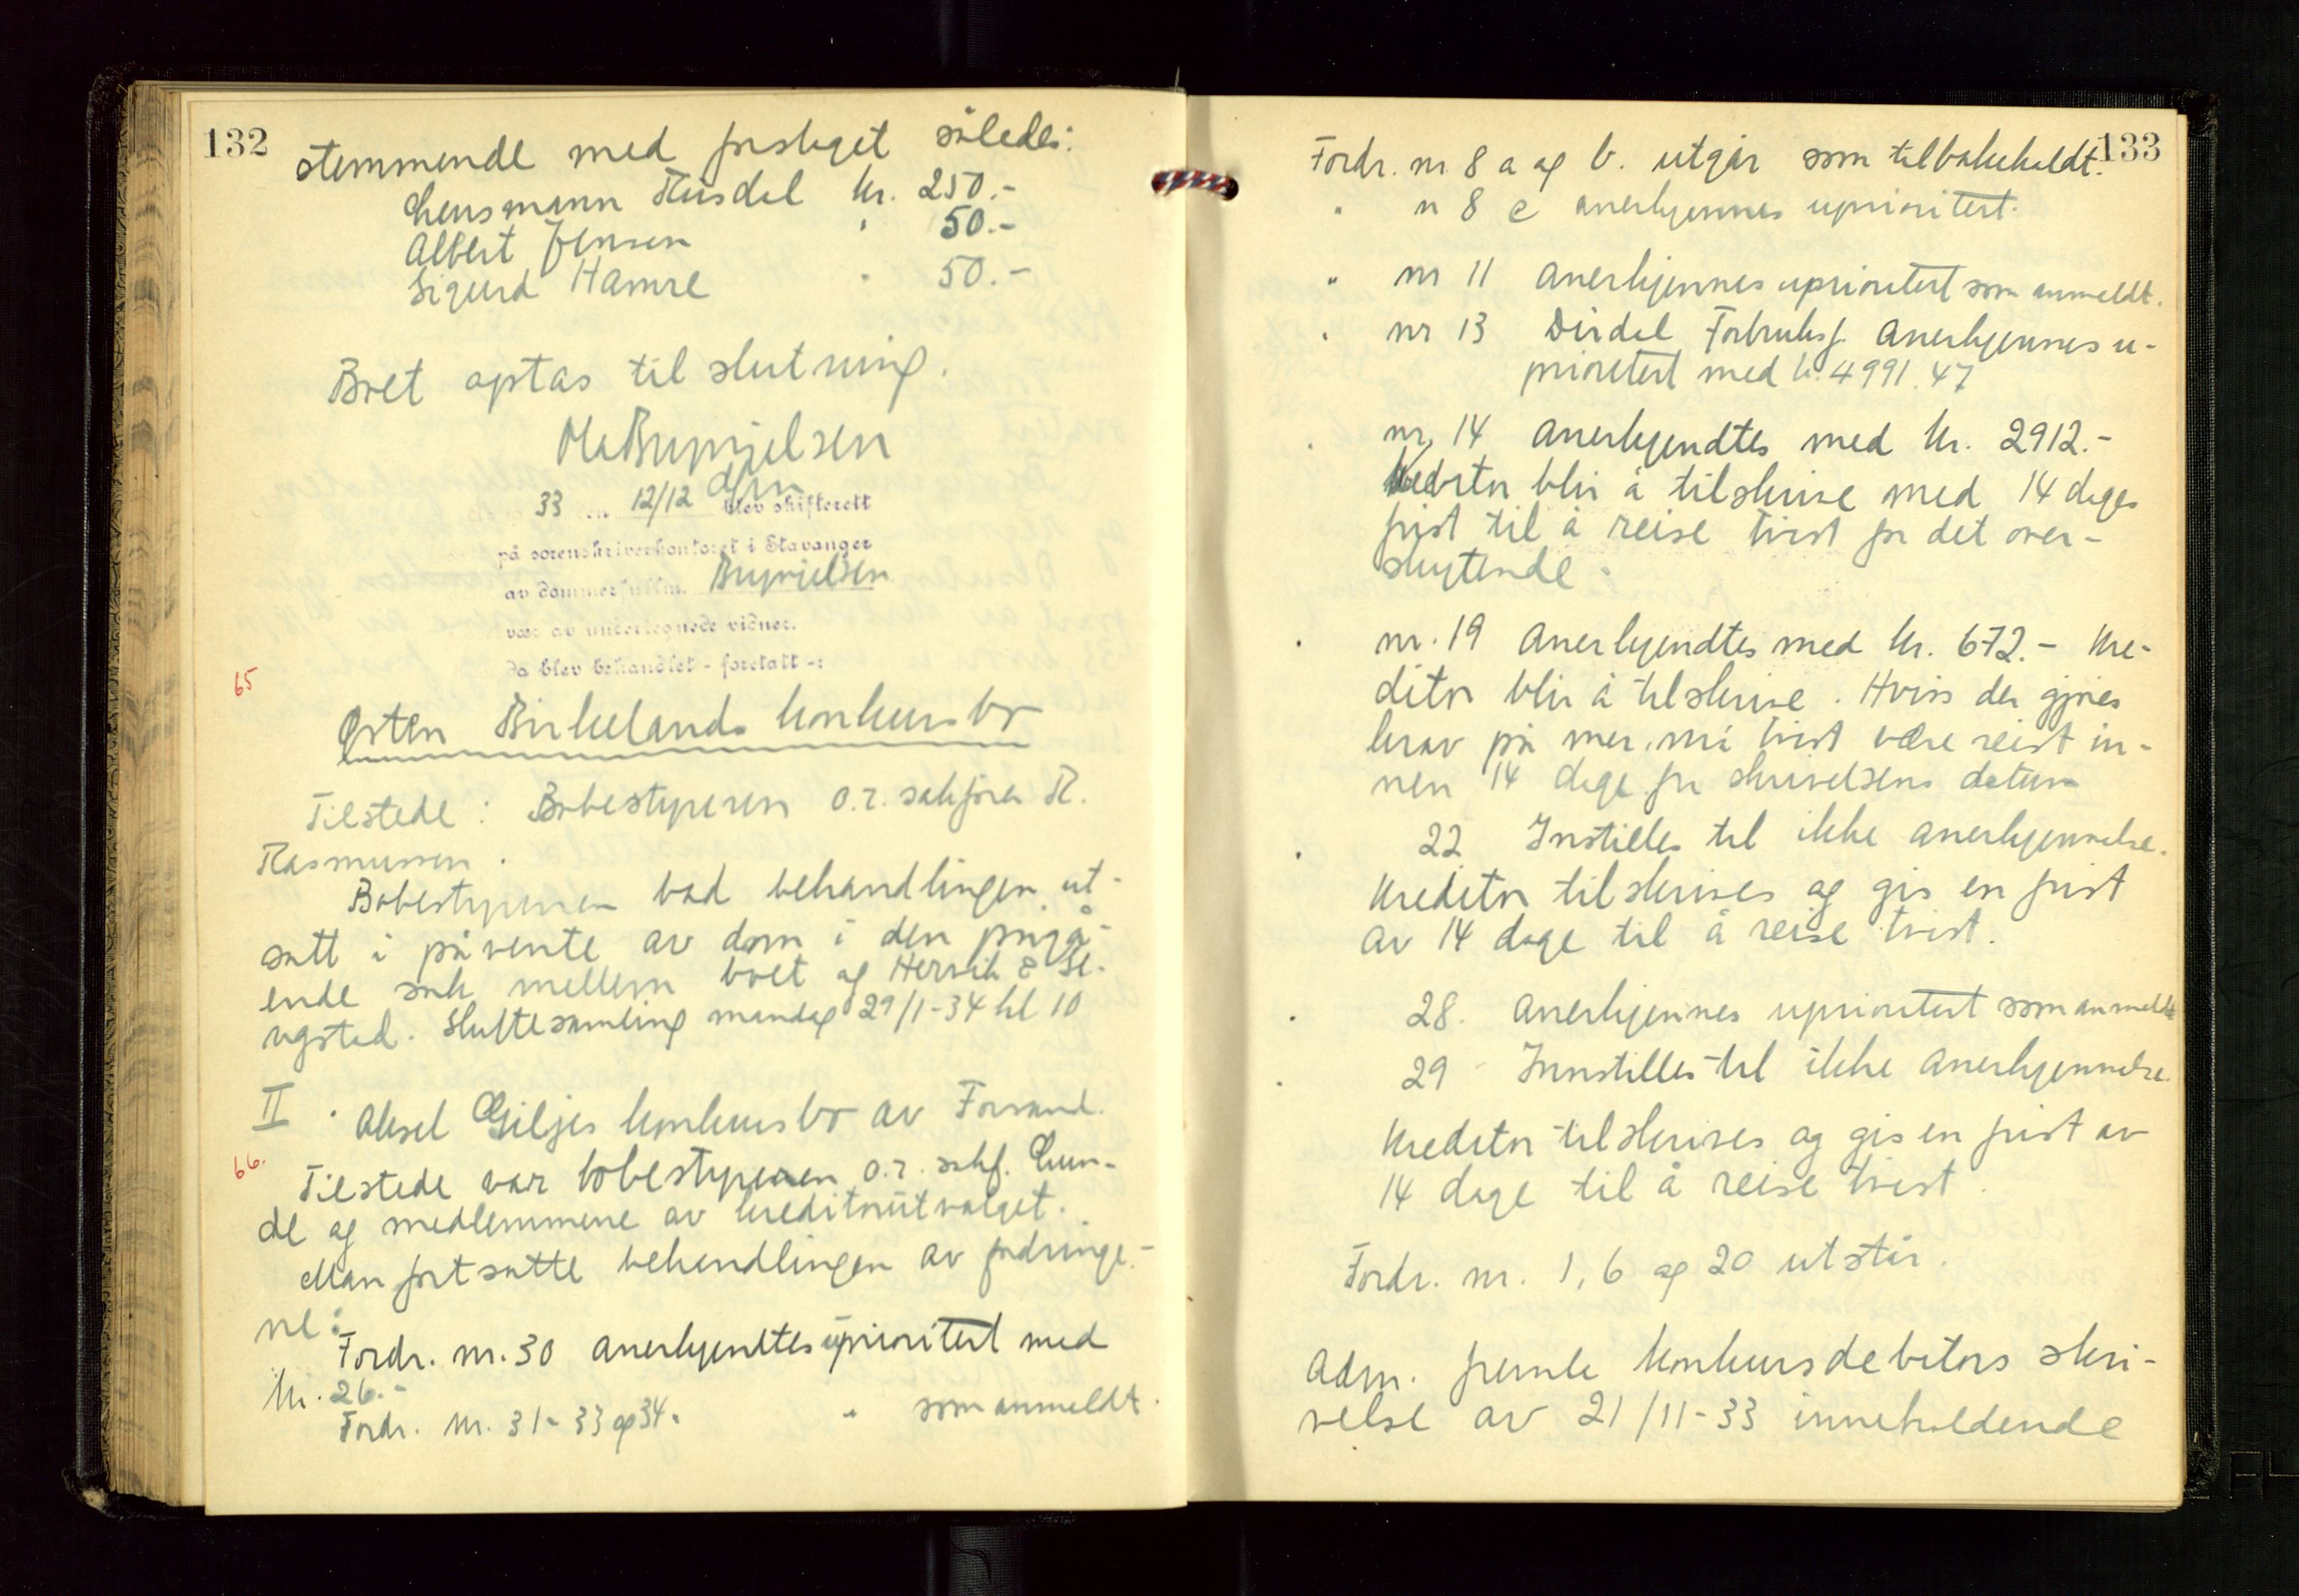 132
stemmende med forslaget således:
Lensmann Risdal kr. 250.-
Albert Jensen " 50.-
Sigurd Hamre " 50.-
Boet optas til slutning.
dfm
33 12/12 blev skifterett
på sorenskriverkontoret i Stavanger
av dommerfullm. Brynjelsen
vær. av undertegnede vidner.
da blev behandlet - foretatt -:
65
Østen Birkelands konkursbo
Tilstede: Bobestyreren o.r. sakfører R.
Rasmussen.
Bobestyreren bad behandlingen ut-
satt i påvente av dom i den pågå-
ende sak mellem boet og Hervik & Se-
vgstad. Skiftesamling mandag 29/1-34 kl 10
II. Aksel Giljes konkursbo av Forsand.
66.
Tilstede var bobestyreren o.r. sakf. Lun-
de og medlemmene av kreditorutvalget.
Man fortsatte behandlingen av fordringe-
ne:
Fordr. nr. 30 anerkjendtes uprioritert med
kr. 26.-
Fordr. nr. 31- 33 og 34. " som anmeldt.
133
Fordr. nr 8 a og b. utgår som tilbakeholdt.
" n 8 c anerkjennes uprioritert.
" nr 11 anerkjennes uprioritert som anmeldt.
" nr 13 Dirdal Forbruksf. anerkjennes u-
prioritert med kr. 4991.47
" nr. 14 anerkjendtes med kr. 2912.-
Kreditor blir å tilskrive med 14 dages
frist til å reise tvist for det over-
skytende.
" nr. 19 anerkjendtes med kr. 672.- Kre-
ditor blir å tilskrive. Hviss der gjøres
krav på mer, må tvist være reist in-
nen 14 dage fra skrivelsens datum
" 22 Instilles til ikke anerkjennelse.
Kreditor tilskrives og gis en frist
av 14 dage til å reise tvist.
" 28. anerkjennes uprioritert som anmeldt
" 29 Innstilles til ikke anerkjennelse.
Kreditor tilskrives og gis en frist av
14 dage til å reise tvist.
Fordr. nr. 1, 6 og 20 utstår.
Adm. fremla konkursdebitors skri-
velse av 21/11-33 inneholdende